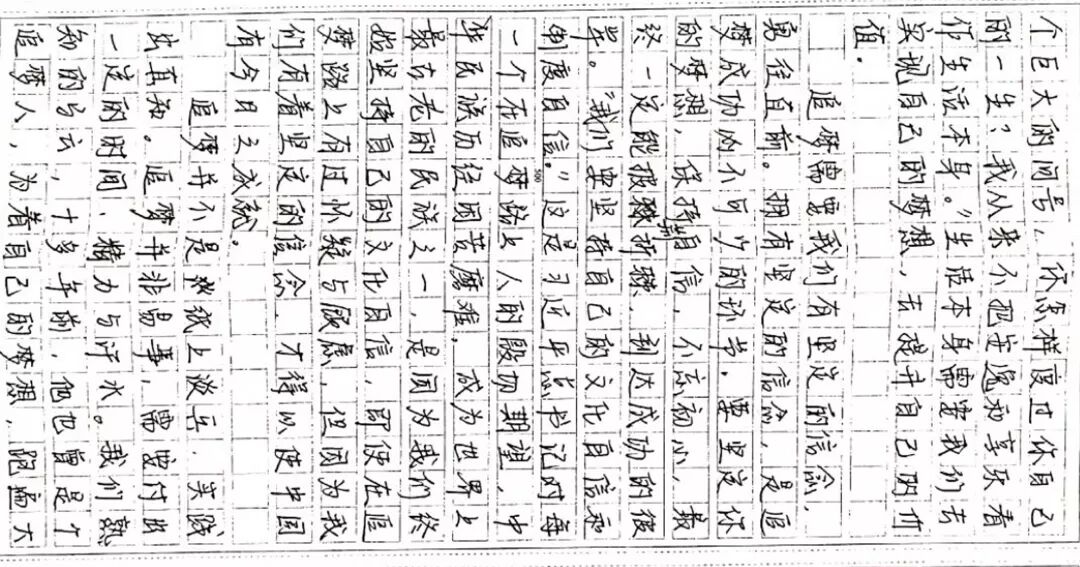 个巨大的问号，你怎样度过你自己
的一生？我从来不把安逸和享乐看
作生活本身。”生活本身需要我们去
实现自己的梦想，去提升自己的价
值．
追梦需要我们有坚定的信念，
勇往直前。拥有坚定的信念，是追
梦成功的不可少的补步，要坚定你
的梦想，保持自信，不忘初心，最
终一定能披荆斩棘，到达成功的彼
岸。“我们要坚持自己的文化自信和
制度自信。”这是习近平总书记对每
500
一个在追梦路上人的殷切期望，中
华民族历经困苦磨难，成为世界上
最古老的民族之一，是因为我们终
始坚持自己的文化自信，即使在追
梦路上有过怀疑与顾虑，但因为我
们有着坚定的信念，才得以使中国
有今日之成就。
追梦并不是纸上谈兵，关键
其真知。追梦并非易事，需要付出
一定的时间、精力与汗水。我们熟
知的马云，十多年前，他也曾是个
追梦人，为着自己的梦想，跑遍大